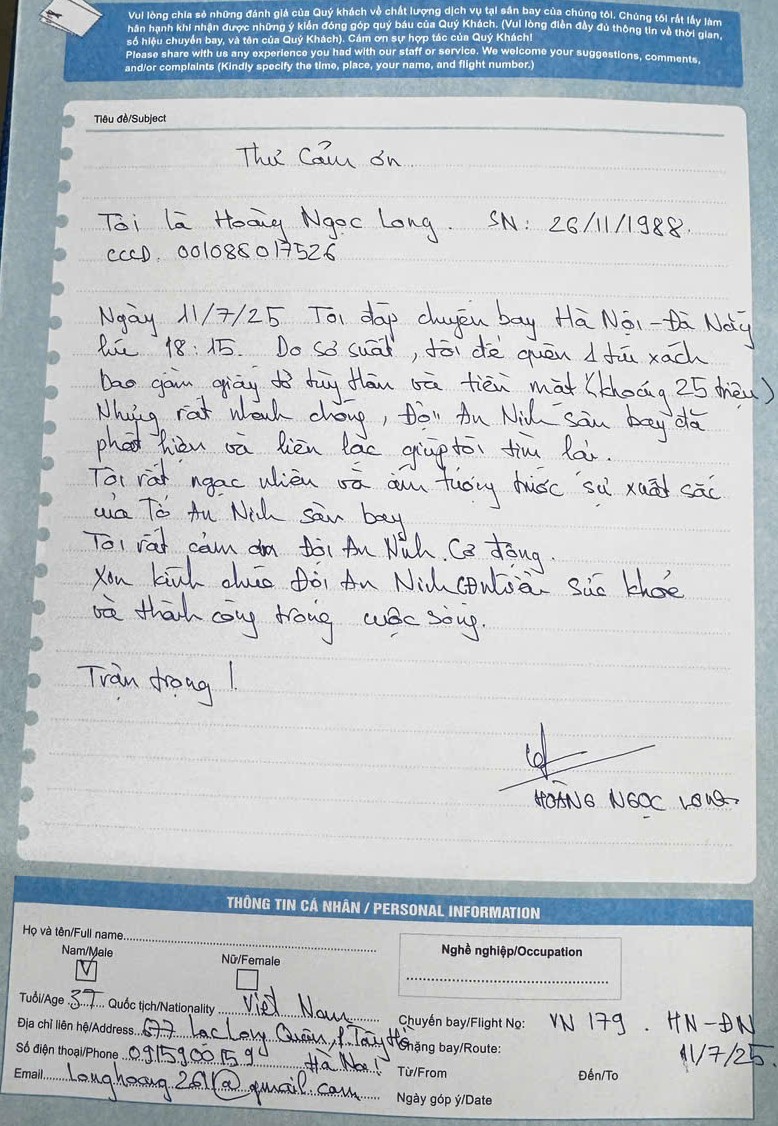 Vui lòng chia sẻ những đánh giá của Quý khách về chất lượng dịch vụ tại sân bay của chúng tôi. Chúng tôi rất lấy làm
hân hạnh khi nhận được những ý kiến đóng góp quý báu của Quý Khách. (Vui lòng điền đầy đủ thông tin về thời gian,
số hiệu chuyến bay, và tên của Quý Khách). Cám ơn sự hợp tác của Quý Khách!
Please share with us any experience you had with our staff or service. We welcome your suggestions, comments,
and/or complaints (Kindly specify the time, place, your name, and flight number.)
Tiêu đề/Subject
Thư Cảm ơn
Tôi là Hoàng Ngọc Long. SN: 26/11/1988.
CCCD. 001088017526
Ngày 11/7/25 Tôi đáp chuyến bay Hà Nội - Đà Nẵng
lúc 18:15. Do sơ suất, tôi để quên 1 túi xách
bao gồm giấy tờ tùy thân và tiền mặt (khoảng 25 triệu)
Nhưng rất nhanh chóng, Đội An Ninh sân bay đã
phát hiện và liên lạc giúp tôi tìm lại.
Tôi rất ngạc nhiên và ấn tượng trước sự xuất sắc
của Tổ An Ninh sân bay
Tôi rất cảm ơn Đội An Ninh Cơ động.
Xin kính chúc Đội An Ninh CĐ sức khỏe
và thành công trong cuộc sống.
Trân trọng!
HOÀNG NGỌC LONG
THÔNG TIN CÁ NHÂN / PERSONAL INFORMATION
Họ và tên/Full name
Nam/Male V Nữ/Female
Nghề nghiệp/Occupation
Tuổi/Age 37 Quốc tịch/Nationality Việt Nam
Địa chỉ liên hệ/Address 677 Lạc Long Quân, P. Tây Hồ
Hà Nội
Số điện thoại/Phone 0915900159
Email longhoang261@gmail.com
Chuyến bay/Flight No: VN 179. HN-ĐN
Chặng bay/Route: 11/7/25.
Từ/From Đến/To
Ngày góp ý/Date